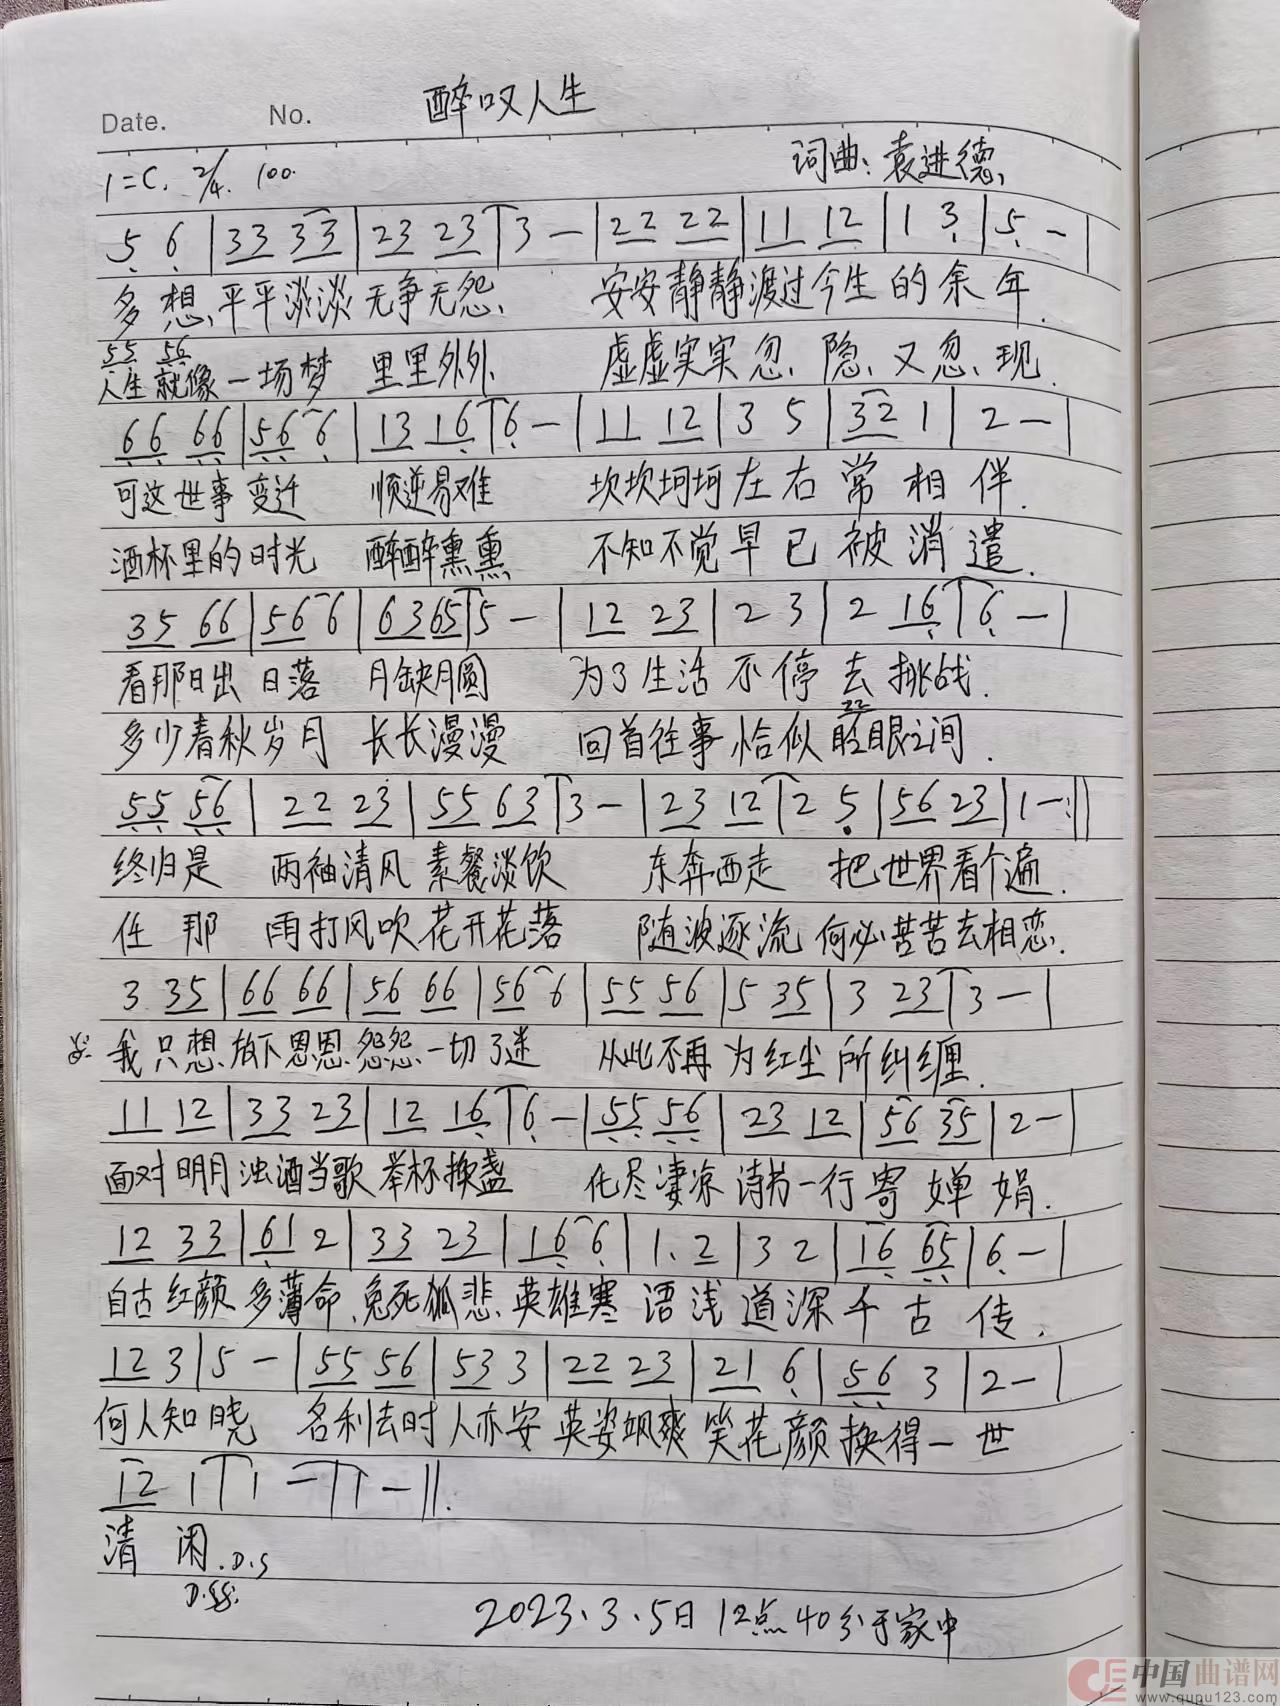 Date. No. 醉叹人生
1=C. 2/4. 100. 词曲:袁进德
5 6 | 33 33 | 23 23 | 3 — | 22 22 | 11 12 | 1 3 | 5 — |
多想,平平淡淡无争无怨、 安安静静渡过今生的余年.
55 56
人生就像一场梦 里里外外、 虚虚实实忽、隐、又忽、现.
66 66 | 56 6 | 13 16 | 6 — | 11 12 | 3 5 | 32 1 | 2 — |
可这世事变迁 顺逆易难 坎坎坷坷左右常相伴.
酒杯里的时光 醉醉熏熏 不知不觉早已被消遣.
35 66 | 56 6 | 63 65 | 5 — | 12 23 | 2 3 | 2 16 | 6 — |
看那日出日落 月缺月圆 为了生活不停去挑战.
22
多少春秋岁月 长长漫漫 回首往事恰似眨眼之间.
55 56 | 22 23 | 55 63 | 3 — | 23 12 | 2 5 | 56 23 | 1 — :||
终归是 两袖清风素餐淡饮 东奔西走 把世界看个遍.
任那 雨打风吹花开花落 随波逐流何必苦苦去相恋.
3 35 | 66 66 | 56 66 | 56 6 | 55 56 | 5 35 | 3 23 | 3 — |
我只想放下恩恩怨怨一切了迷 从此不再为红尘所纠缠.
11 12 | 33 23 | 12 16 | 6 — | 55 56 | 23 12 | 56 35 | 2 — |
面对明月浊酒当歌举杯换盏 化尽凄凉诗书一行寄婵娟.
12 33 | 61 2 | 33 23 | 16 6 | 1. 2 | 3 2 | 16 65 | 6 — |
自古红颜多薄命、兔死狐悲、英雄寒 语浅道深千古传.
12 3 | 5 — | 55 56 | 53 3 | 22 23 | 21 6 | 56 3 | 2 — |
何人知晓 名利去时人亦安 英姿飒爽笑花颜换得一世
12 1 | 1 — | 1 — ||.
清闲.D.S
D.SS.
2023.3.5日12点40分于家中
中国曲谱网
www.qupu123.com